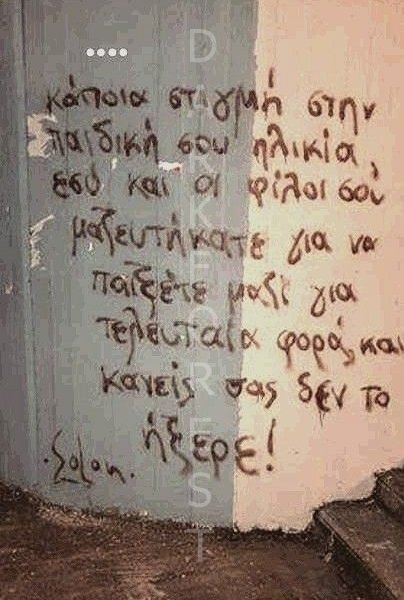 κάποια στιγμή στην
παιδική σου ηλικία,
εσύ και οι φίλοι σου
μαζευτήκατε για να
παίξετε μαζί για
τελευταία φορά, και
κανείς σας δεν το
ήξερε!
·Solon.
DARKFOREST